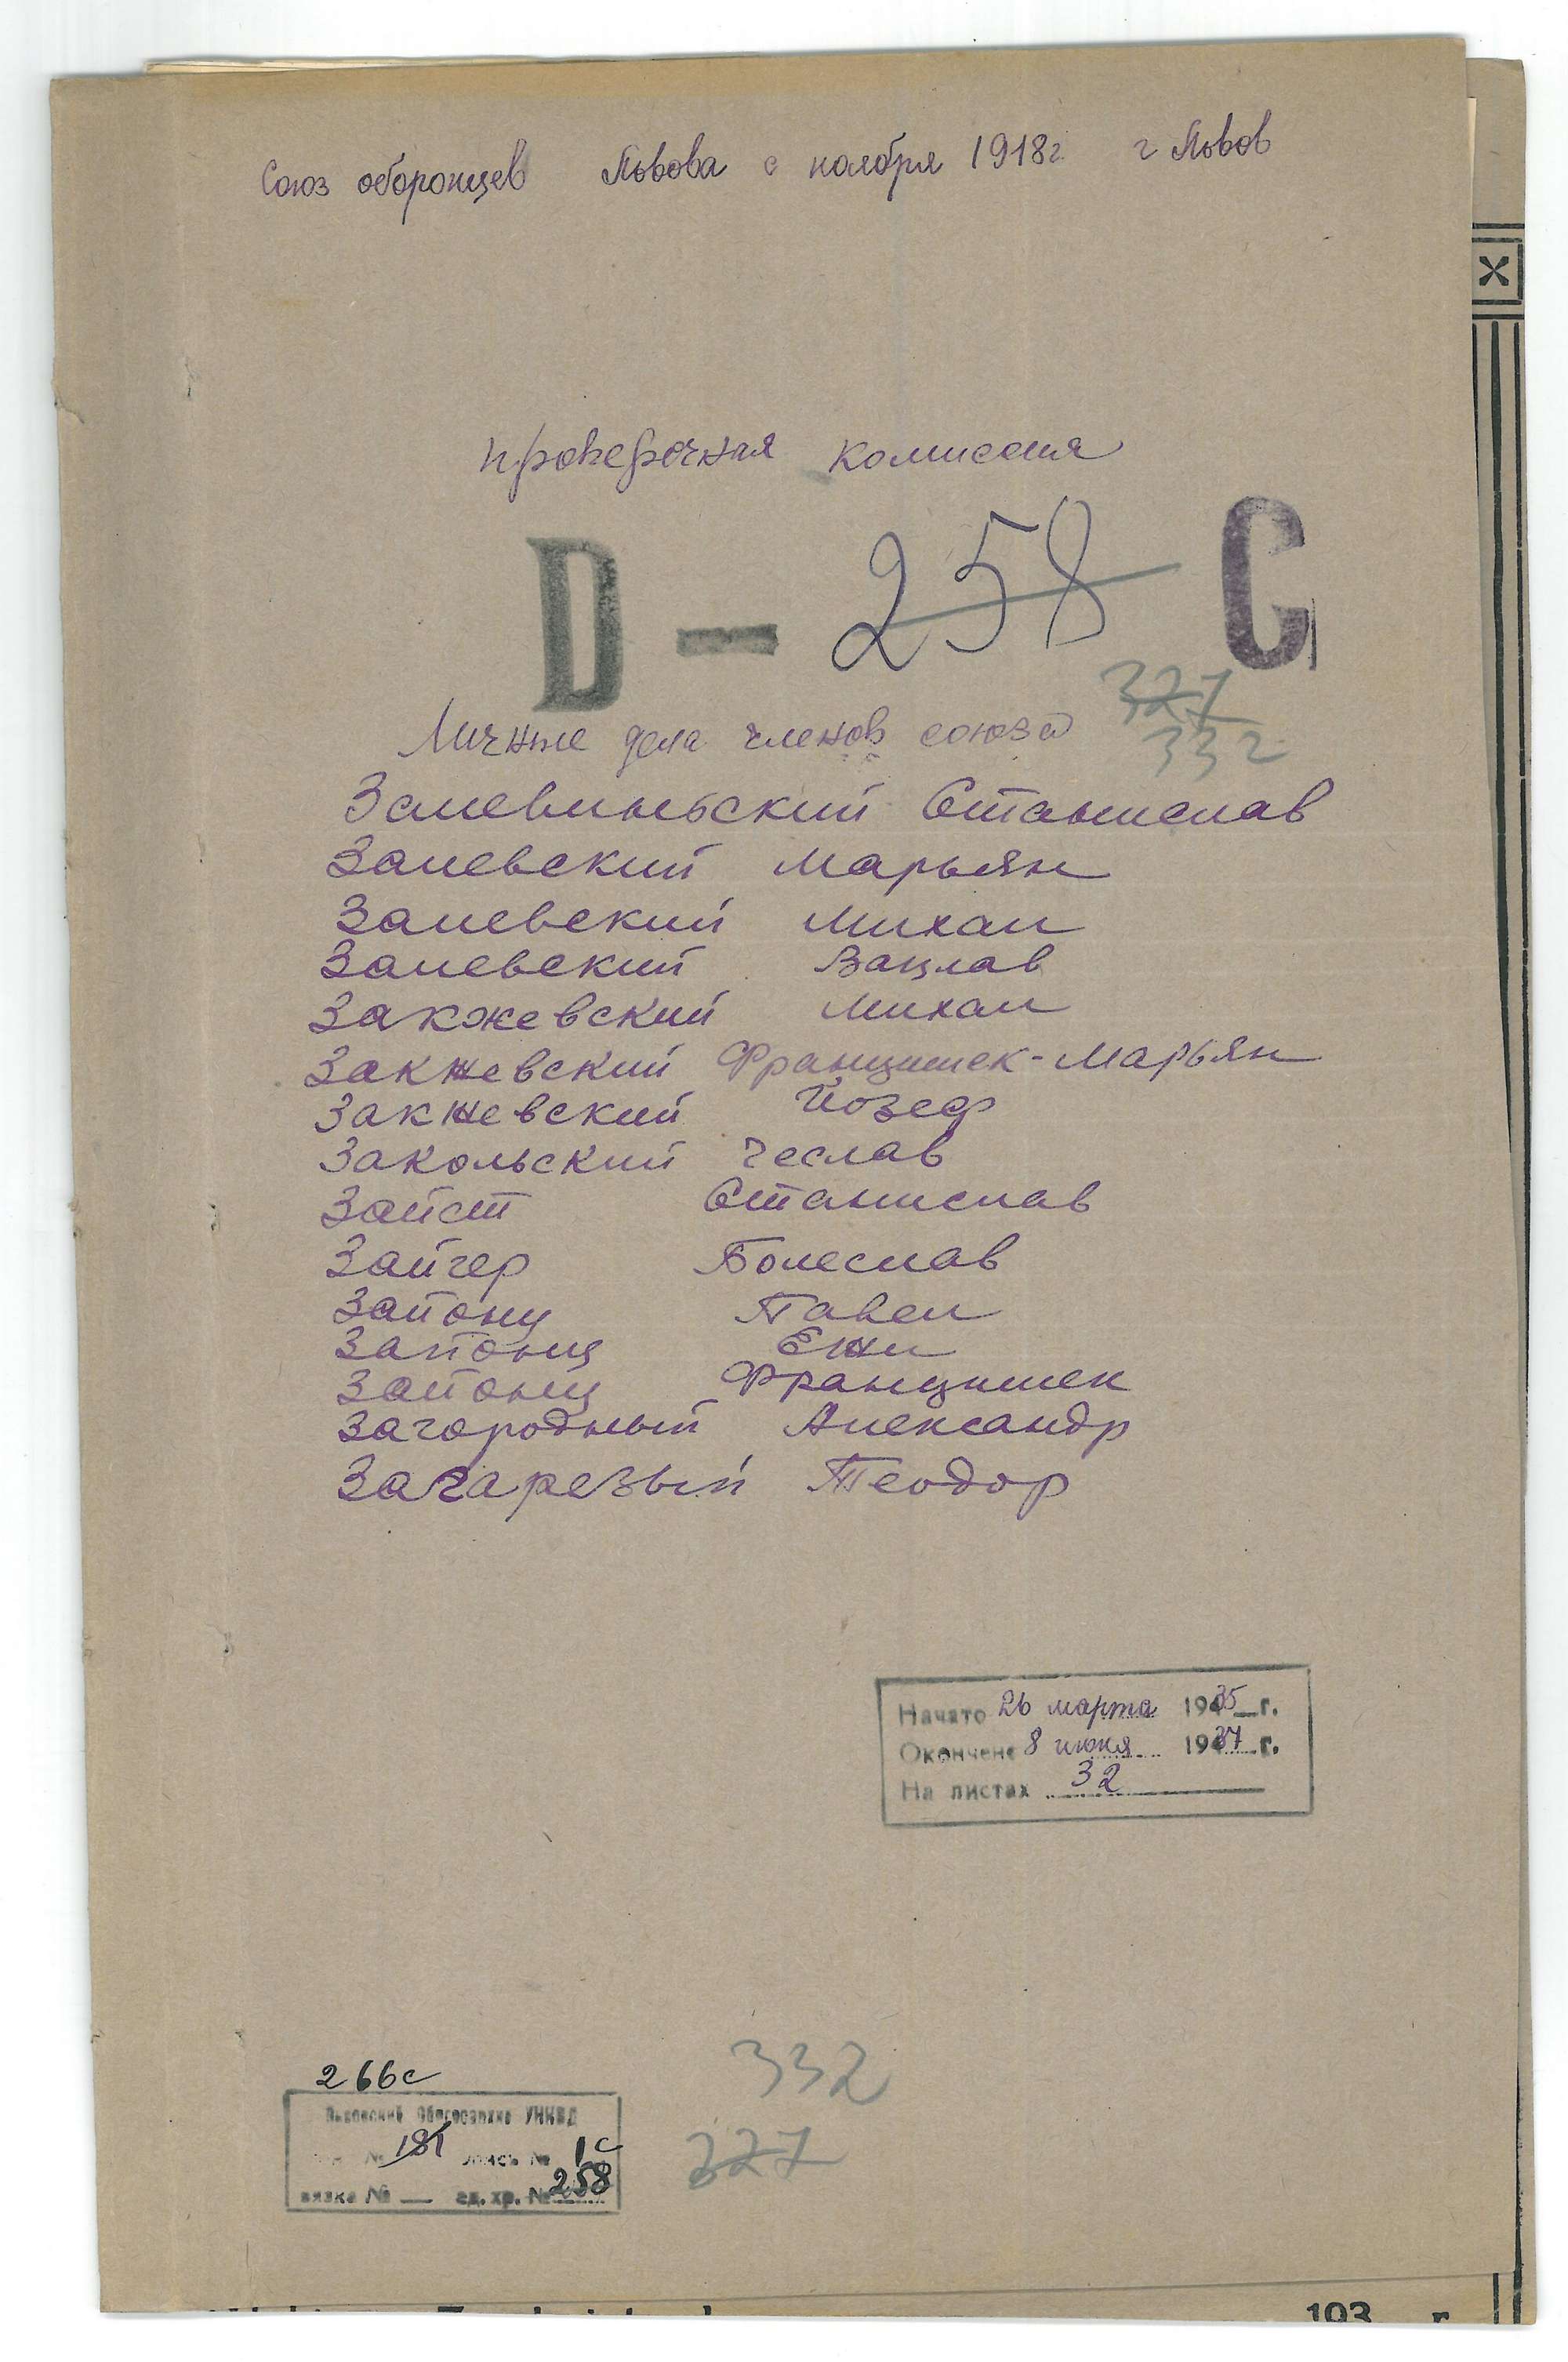 Союз оборонцев Львова с ноября 1918г г Львов
проверочная комиссия
D — 258 C
327
332
Личные дела членов союза
Залевиньский Станислав
Залевский Марьян
Залевский Михал
Залевский Вацлав
Закжевский Михал
Закжевский Францишек-Марьян
Закжевский Йозеф
Закольский Чеслав
Зайст Станислав
Зайгер Болеслав
Зайонц Павел
Зайонц Ежи
Зайонц Францишек
Загородный Александр
Загарезый Теодор
Начато 26 марта 1935 г.
Окончено 8 июня 1937 г.
На листах 32
332
266с
Львовский Облгосархив УНКВД
№ 181 опись № 1с
327
вязка № — ед. хр. № 258
193 г